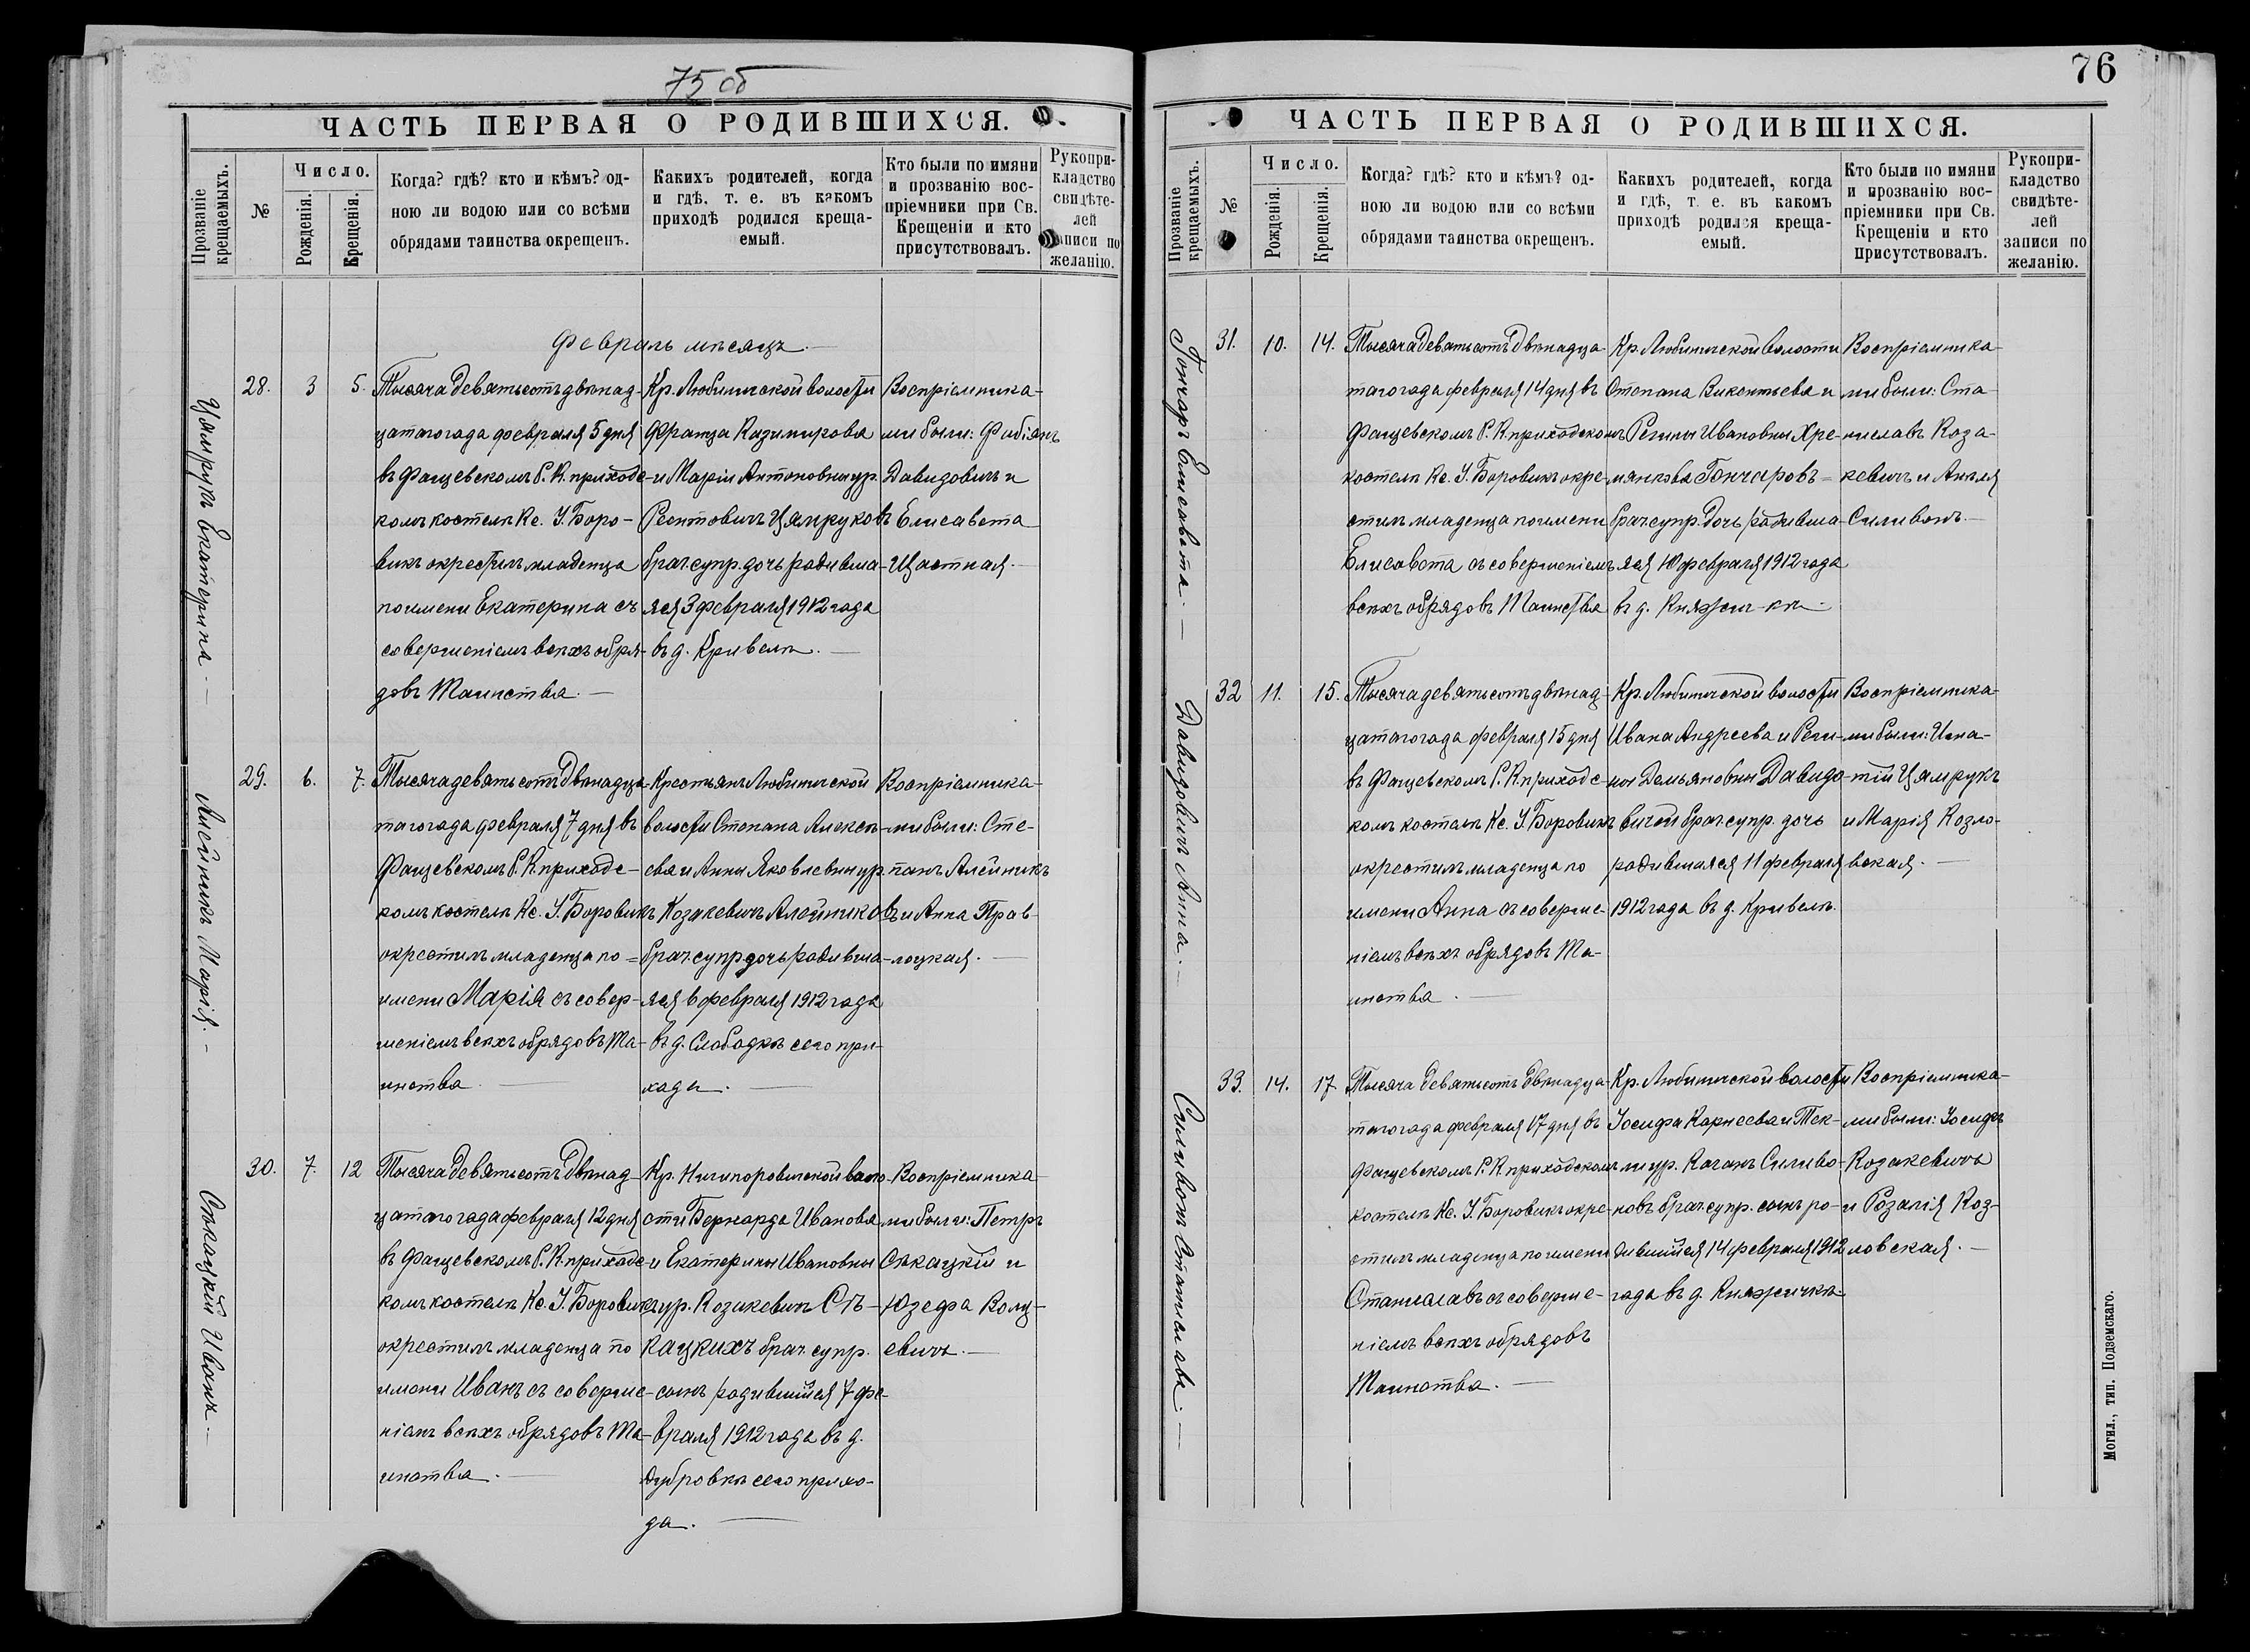 75 об
ЧАСТЬ ПЕРВАЯ О РОДИВШИХСЯ.
Прозваніе крещаемыхъ.
№
Число.
Рожденія.
Крещенія.
Когда? гдѣ? кто и кѣмъ? од-
ною ли водою или со всѣми
обрядами таинства окрещенъ.
Какихъ родителей, когда
и гдѣ, т. е. въ какомъ
приходѣ родился креща-
емый.
Кто были по имяни
и прозванію вос-
пріемники при Св.
Крещеніи и кто
присутствовалъ.
Рукопри-
кладство
свидѣте-
лей
записи по
желанію.
Февраль мѣсяцъ.
Цямрукъ Екатерина.
28.
3
5.
Тысяча девятьсотъ двѣнад-
цатаго года февраля 5 дня
въ Фащевскомъ Р. К. приходс-
комъ костелѣ Кс. У. Боро-
викъ окрестилъ младенца
по имени Екатерина съ
совершеніемъ всѣхъ обря-
довъ Таинства.
Кр. Любиничской волости
Франца Казимирова
и Маріи Антоновны ур.
Реонтовичъ Цямруковъ
брач. супр. дочь родивша-
яся 3 февраля 1912 года
въ д. Кривелѣ.
Воспріемника-
ми были: Фабіянъ
Давидовичъ и
Елисавета
Щастная.
Алейникъ Марія.
29.
6.
7.
Тысяча девятьсотъ двѣнадца-
таго года февраля 7 дня въ
Фащевскомъ Р. К. приходс-
комъ костелѣ Кс. У. Боровикъ
окрестилъ младенца по
имени Марія съ совер-
шеніемъ всѣхъ обрядовъ Та-
инства.
Крестьянъ Любиничской
волости Степана Алексѣ-
ева и Анны Яковлевны ур.
Козакевичъ Алейниковъ
брач. супр. дочь родивша-
яся 6 февраля 1912 года
въ д. Слободкѣ сего при-
хода.
Воспріемника-
ми были: Сте-
панъ Алейникъ
и Анна Прав-
лоцкая.
Сѣкацкій Иванъ.
30.
7.
12
Тысяча девятьсотъ двѣнад-
цатаго года февраля 12 дня
въ Фащевскомъ Р. К. приходс-
комъ костелѣ Кс. У. Боровикъ
окрестилъ младенца по
имени Иванъ съ соверше-
ніемъ всѣхъ обрядовъ Та-
инства.
Кр. Ничипоровичской воло-
сти Бернарда Иванова
и Екатерины Ивановны
ур. Козакевичъ Сѣ-
кацкихъ брач. супр.
сынъ родившійся 7 фе-
враля 1912 года въ д.
Дубровкѣ сего прихо-
да.
Воспріемника-
ми были: Петръ
Сѣкацкій и
Юзефа Волц-
евичъ.
76
ЧАСТЬ ПЕРВАЯ О РОДИВШИХСЯ.
Прозваніе крещаемыхъ.
№
Число.
Рожденія.
Крещенія.
Когда? гдѣ? кто и кѣмъ? од-
ною ли водою или со всѣми
обрядами таинства окрещенъ.
Какихъ родителей, когда
и гдѣ, т. е. въ какомъ
приходѣ родился креща-
емый.
Кто были по имяни
и прозванію вос-
пріемники при Св.
Крещеніи и кто
присутствовалъ.
Рукопри-
кладство
свидѣте-
лей
записи по
желанію.
Гончаръ Елисавета.
31.
10.
14.
Тысяча девятьсотъ двѣнадца-
таго года февраля 14 дня въ
Фащевскомъ Р. К. приходскомъ
костелѣ Кс. У. Боровикъ окре-
стилъ младенца по имени
Елисавета съ совершеніемъ
всѣхъ обрядовъ Таинства
Кр. Любиничской волости
Степана Викентьева и
Регины Ивановны Хре-
мянкова Гончаровъ
брач. супр. дочь родивша-
яся 10 февраля 1912 года
въ д. Княжич-кѣ.
Воспріемника-
ми были: Ста-
ниславъ Коза-
кевичъ и Анеля
Силивонъ.
Давидовичъ Анна.
32
11.
15.
Тысяча девятьсотъ двѣнад-
цатаго года февраля 15 дня
въ Фащевскомъ Р. К. приходс-
комъ костелѣ Кс. У. Боровикъ
окрестилъ младенца по
имени Анна съ соверше-
ніемъ всѣхъ обрядовъ Та-
инства.
Кр. Любиничской волости
Ивана Андреева и Реги-
ны Демьяновны Давидо-
вичей брач. супр. дочь
родившаяся 11 февраля
1912 года въ д. Кривелѣ.
Воспріемника-
ми были: Игна-
тій Цямрукъ
и Марія Козло-
вская.
Силивонъ Станиславъ.
33.
14.
17
Тысяча девятьсотъ двѣнадца-
таго года февраля 17 дня въ
Фащевскомъ Р. К. приходскомъ
костелѣ Кс. У. Боровикъ окре-
стилъ младенца по имени
Станиславъ съ соверше-
ніемъ всѣхъ обрядовъ
Таинства.
Кр. Любиничской волости
Іосифа Карнеева и Тек-
ли ур. Каганъ Силиво-
новъ брач. супр. сынъ ро-
дившійся 14 февраля 1912
года въ д. Княжичкѣ.
Воспріемника-
ми были: Іосифъ
Козакевичъ
и Розалія Коз-
ловская.
Могил., тип. Подземскаго.